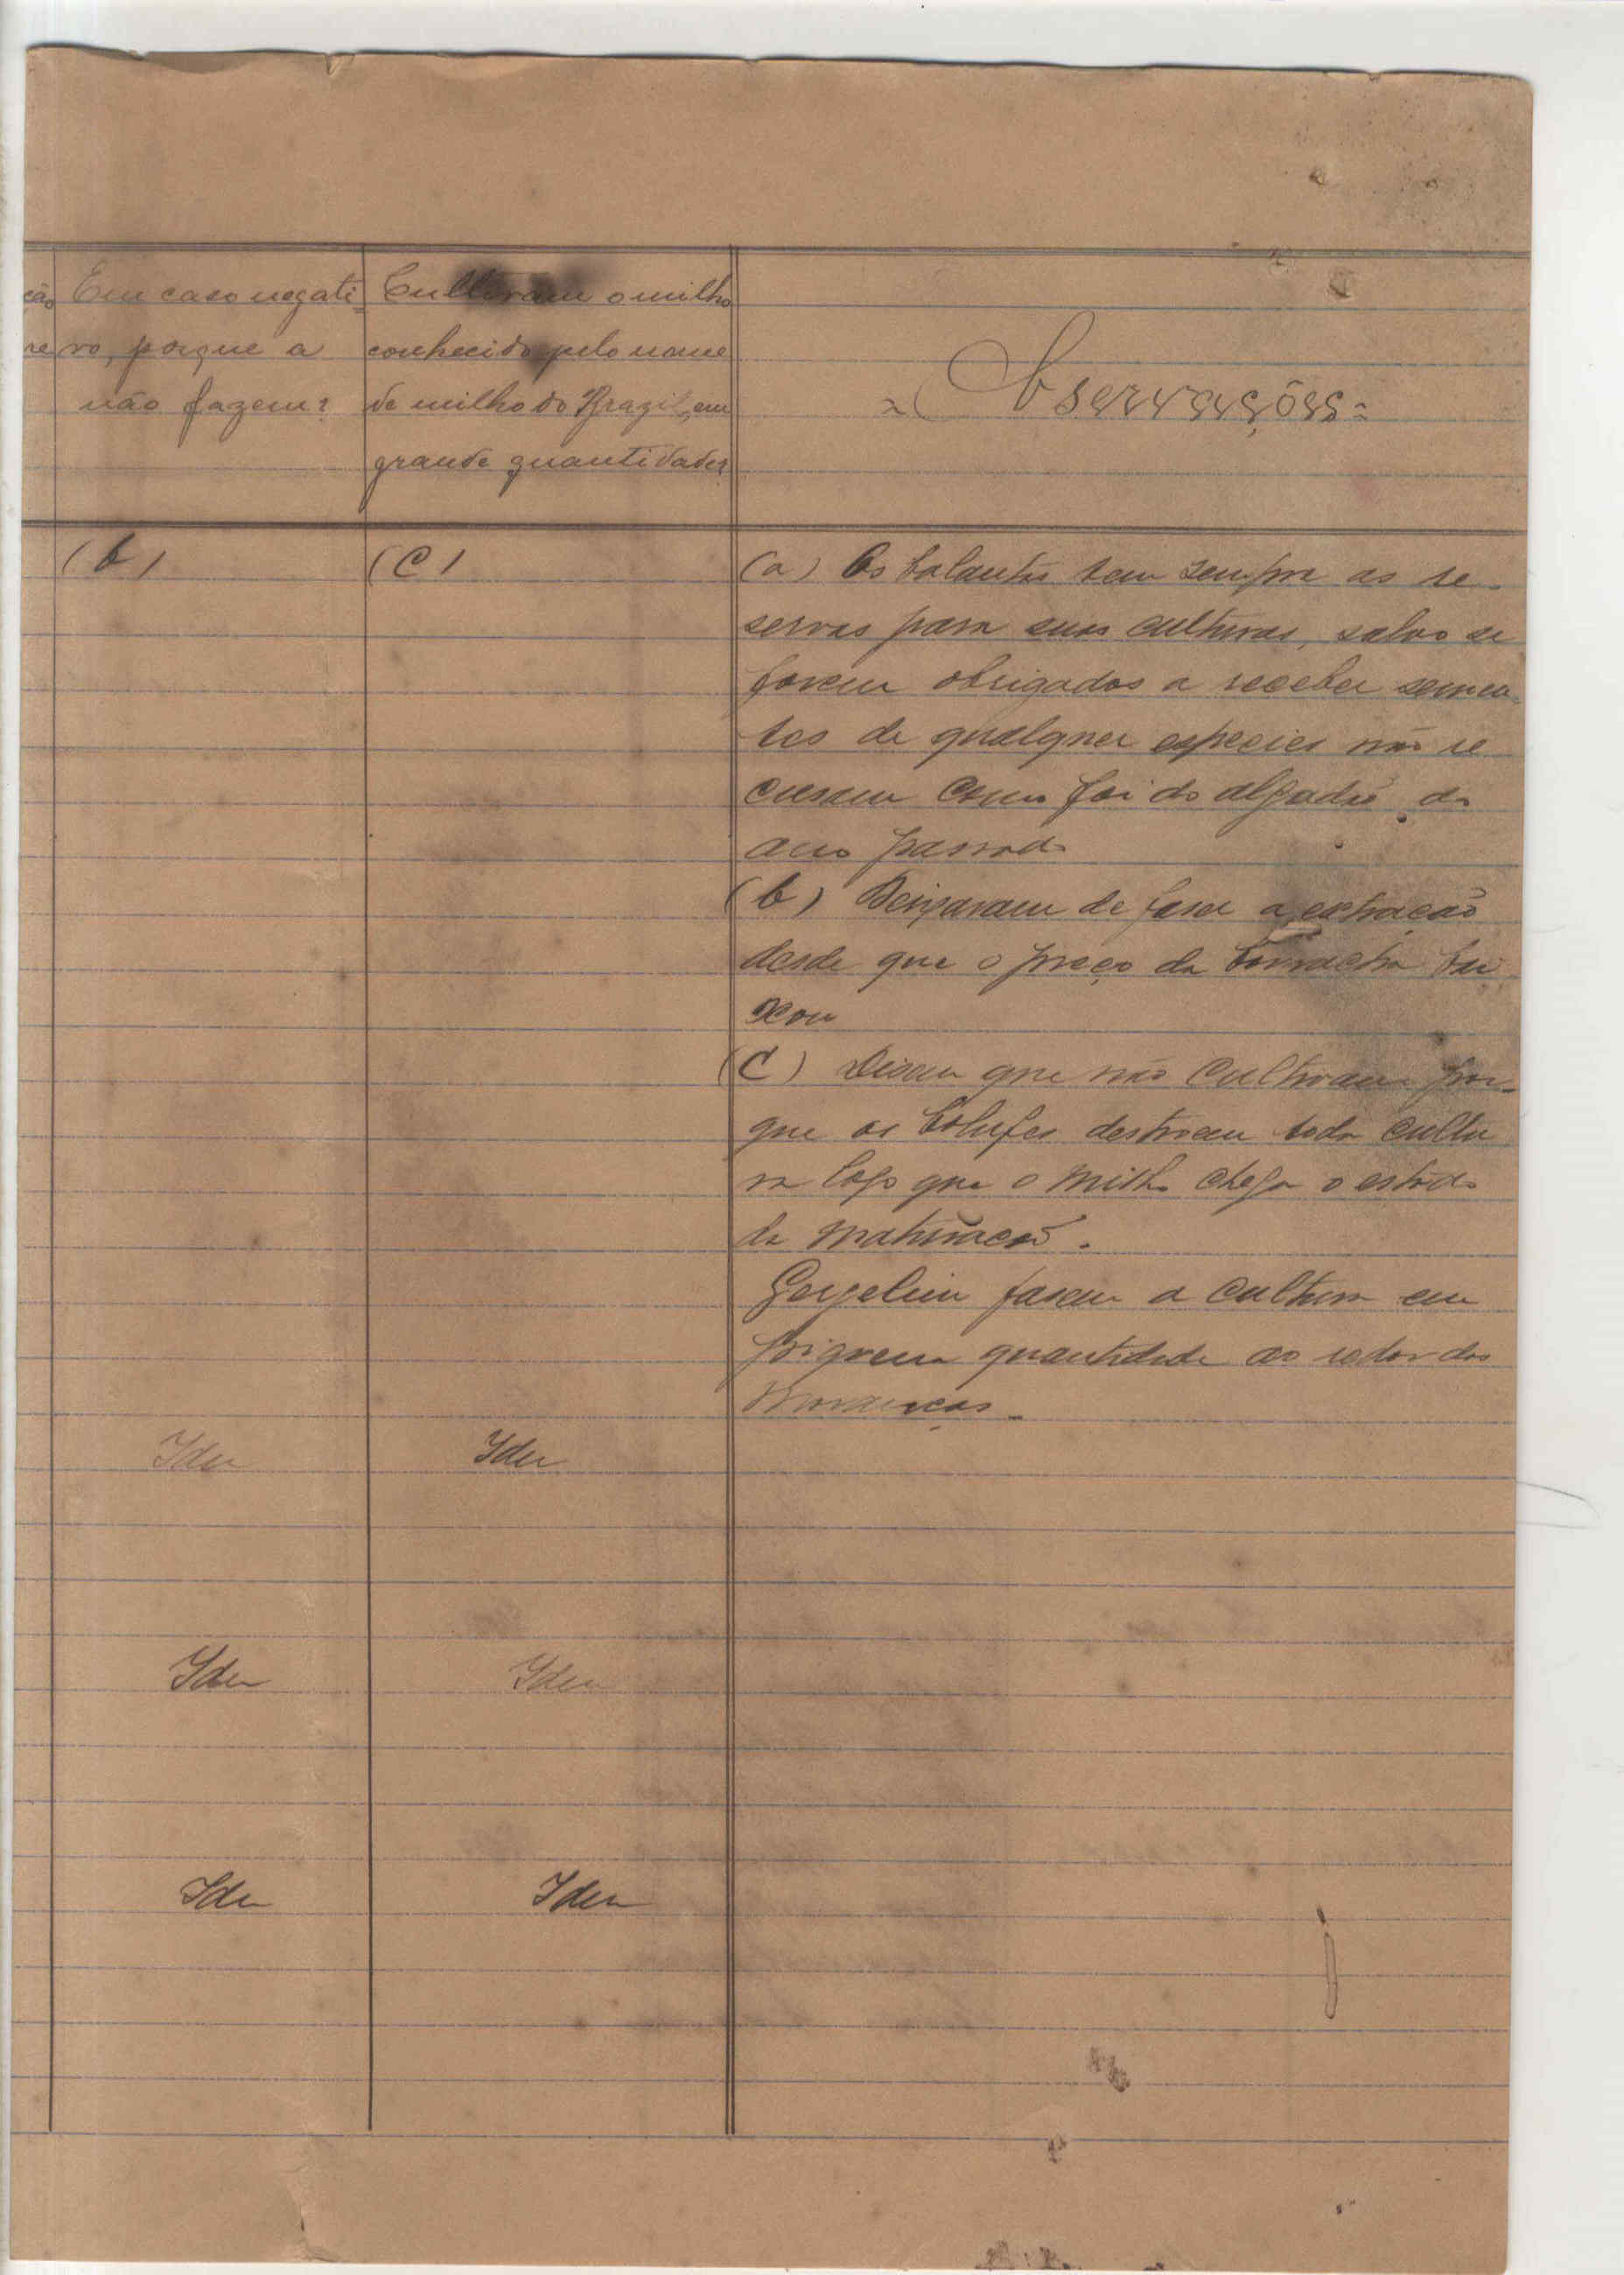 ção
re
Em caso negati=
vo, porque a
não fazem?
Cultivam o milho
conhecido pelo nome
de milho do Brazil, em
grande quantidade?
=Observações=
(b)
(c)
(a) Os balantas tem sempre as re-
servas para suas culturas, salvo se
forem obrigados a receber semen-
tes de qualquer especies não re
cusam como foi do algodão do
ano passado
(b) Deixaram de faser a extração
desde que o preço da borracha bai
xou
(c) Disem que não cultivam por-
que os destroem toda cultu
ra logo que o milho chega o estado
da maturação.
Gergelim fasem a cultura em
piquena quantidade ao redor das
moranças-
Idem
Idem
Idem
Idem
Idem
Idem